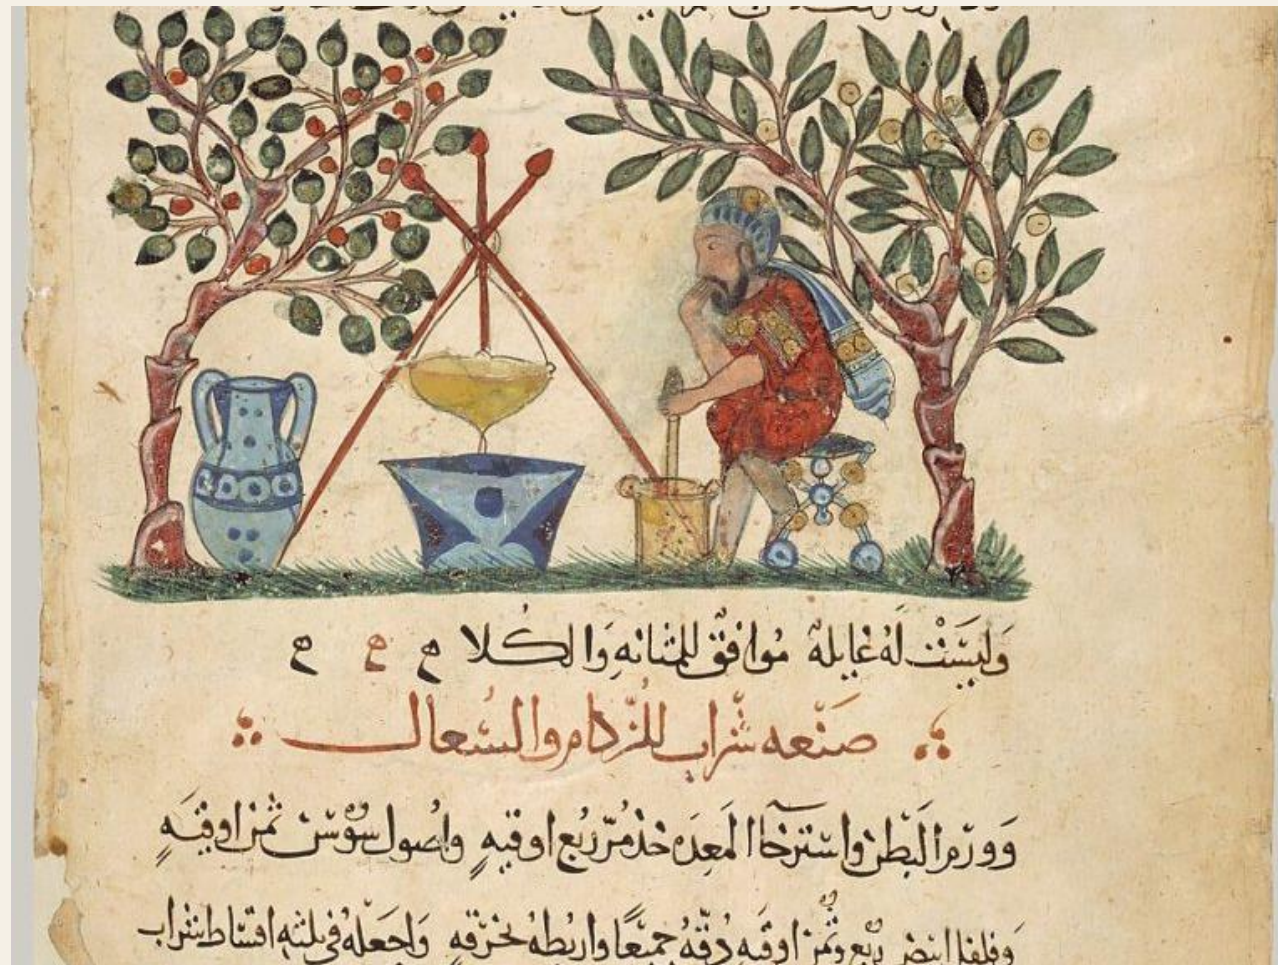 وَلَيسَتْ لَهُ غايلة مُوافقٌ للمثانه وَالكُلا ح ح ح
صَنْعه شَراب للزكام والسُعال
وَوَرَم البَطن واسترخاا المَعِدَه خذ مُرّ رُبع اوقيهٍ واصُول سُوسَن ثمن اوقيَهٍ
وفلفل ابيض ربع وثمن اوقيه دُقّهُ جميعًا واربُطهُ بخرقه وَاجعَلهُ في ثلثه اقساط شراب